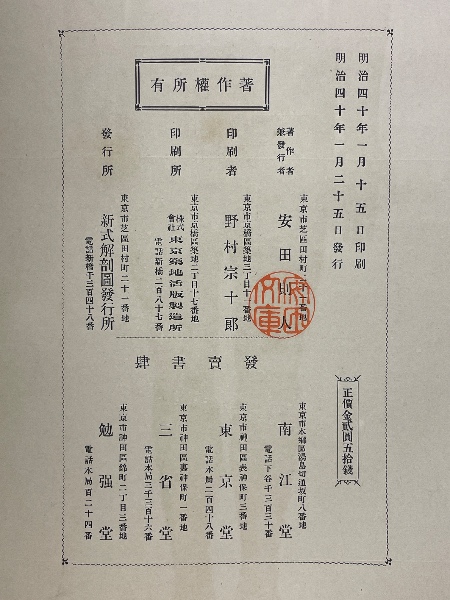 明治四十年一月十五日印刷
明治四十年一月二十五日發行
正價金貳圓五拾錢
著作權所有
著作者
兼發行者
東京市芝區田村町二十一番地
安田則人
印刷者
東京市京橋區築地三丁目十一番地
野村宗十郞
印刷所
東京市京橋區築地二丁目十七番地
株式
會社
東京築地活版製造所
電話新橋二百八十七番
發行所
東京市芝區田村町二十一番地
新式解剖圖發行所
電話新橋千三百四十八番
發賣書肆
東京市本鄉區湯島切通坂町八番地
南江堂
電話下谷千三百三十番
東京市神田區表神保町三番地
東京堂
電話本局二百四十八番
東京市神田區裏神保町一番地
三省堂
電話本局三千三百十六番
東京市神田區錦町二丁目三番地
勉强堂
電話本局百二十四番